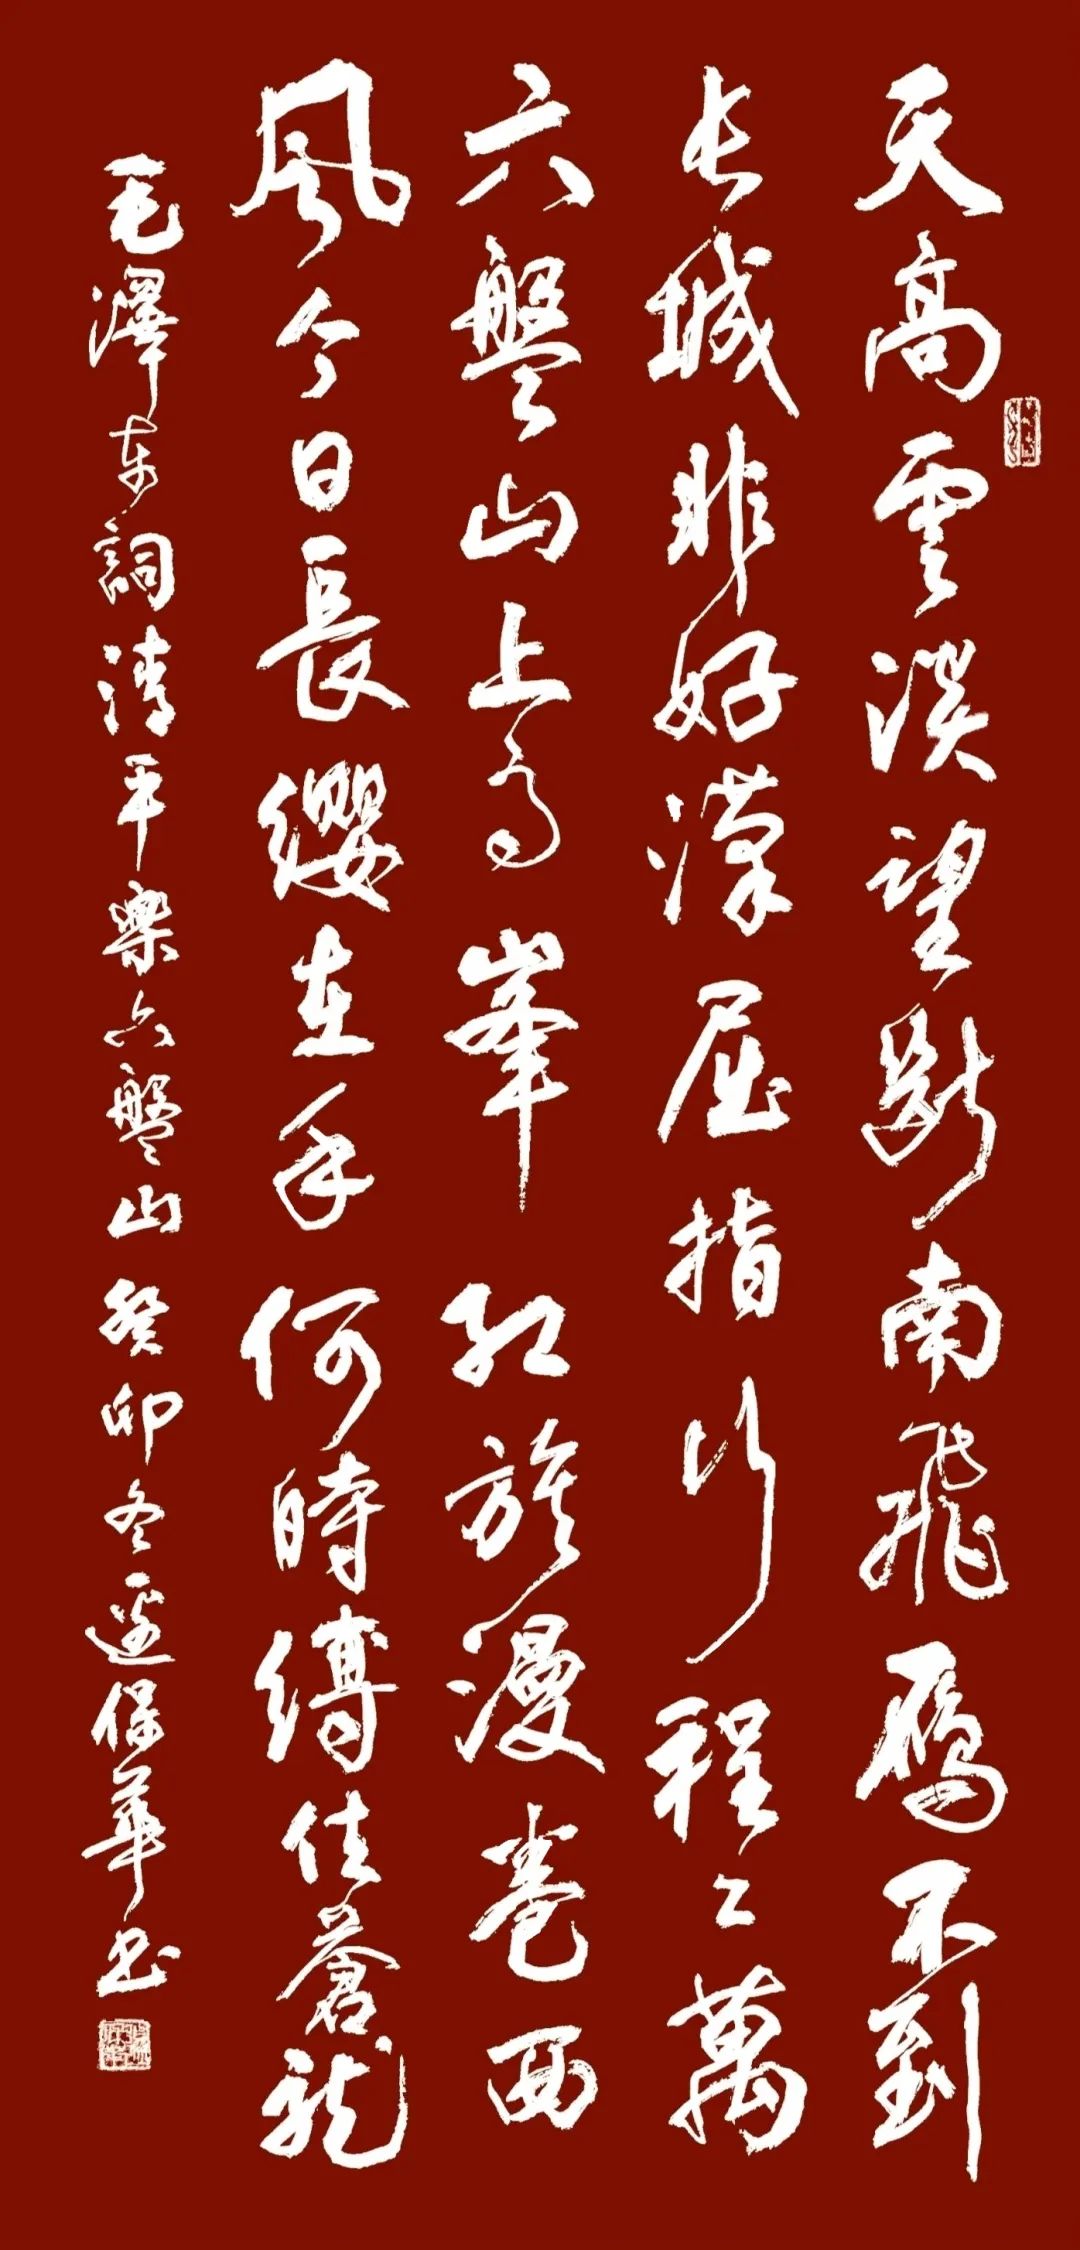 天高雲淡望斷南飛雁不到
长城非好漢屈指行程二萬
六盤山上高峯红旗漫卷西
風今日長纓在手何時縛住蒼龍
毛澤东詞清平樂六盤山 癸卯冬邊保華书